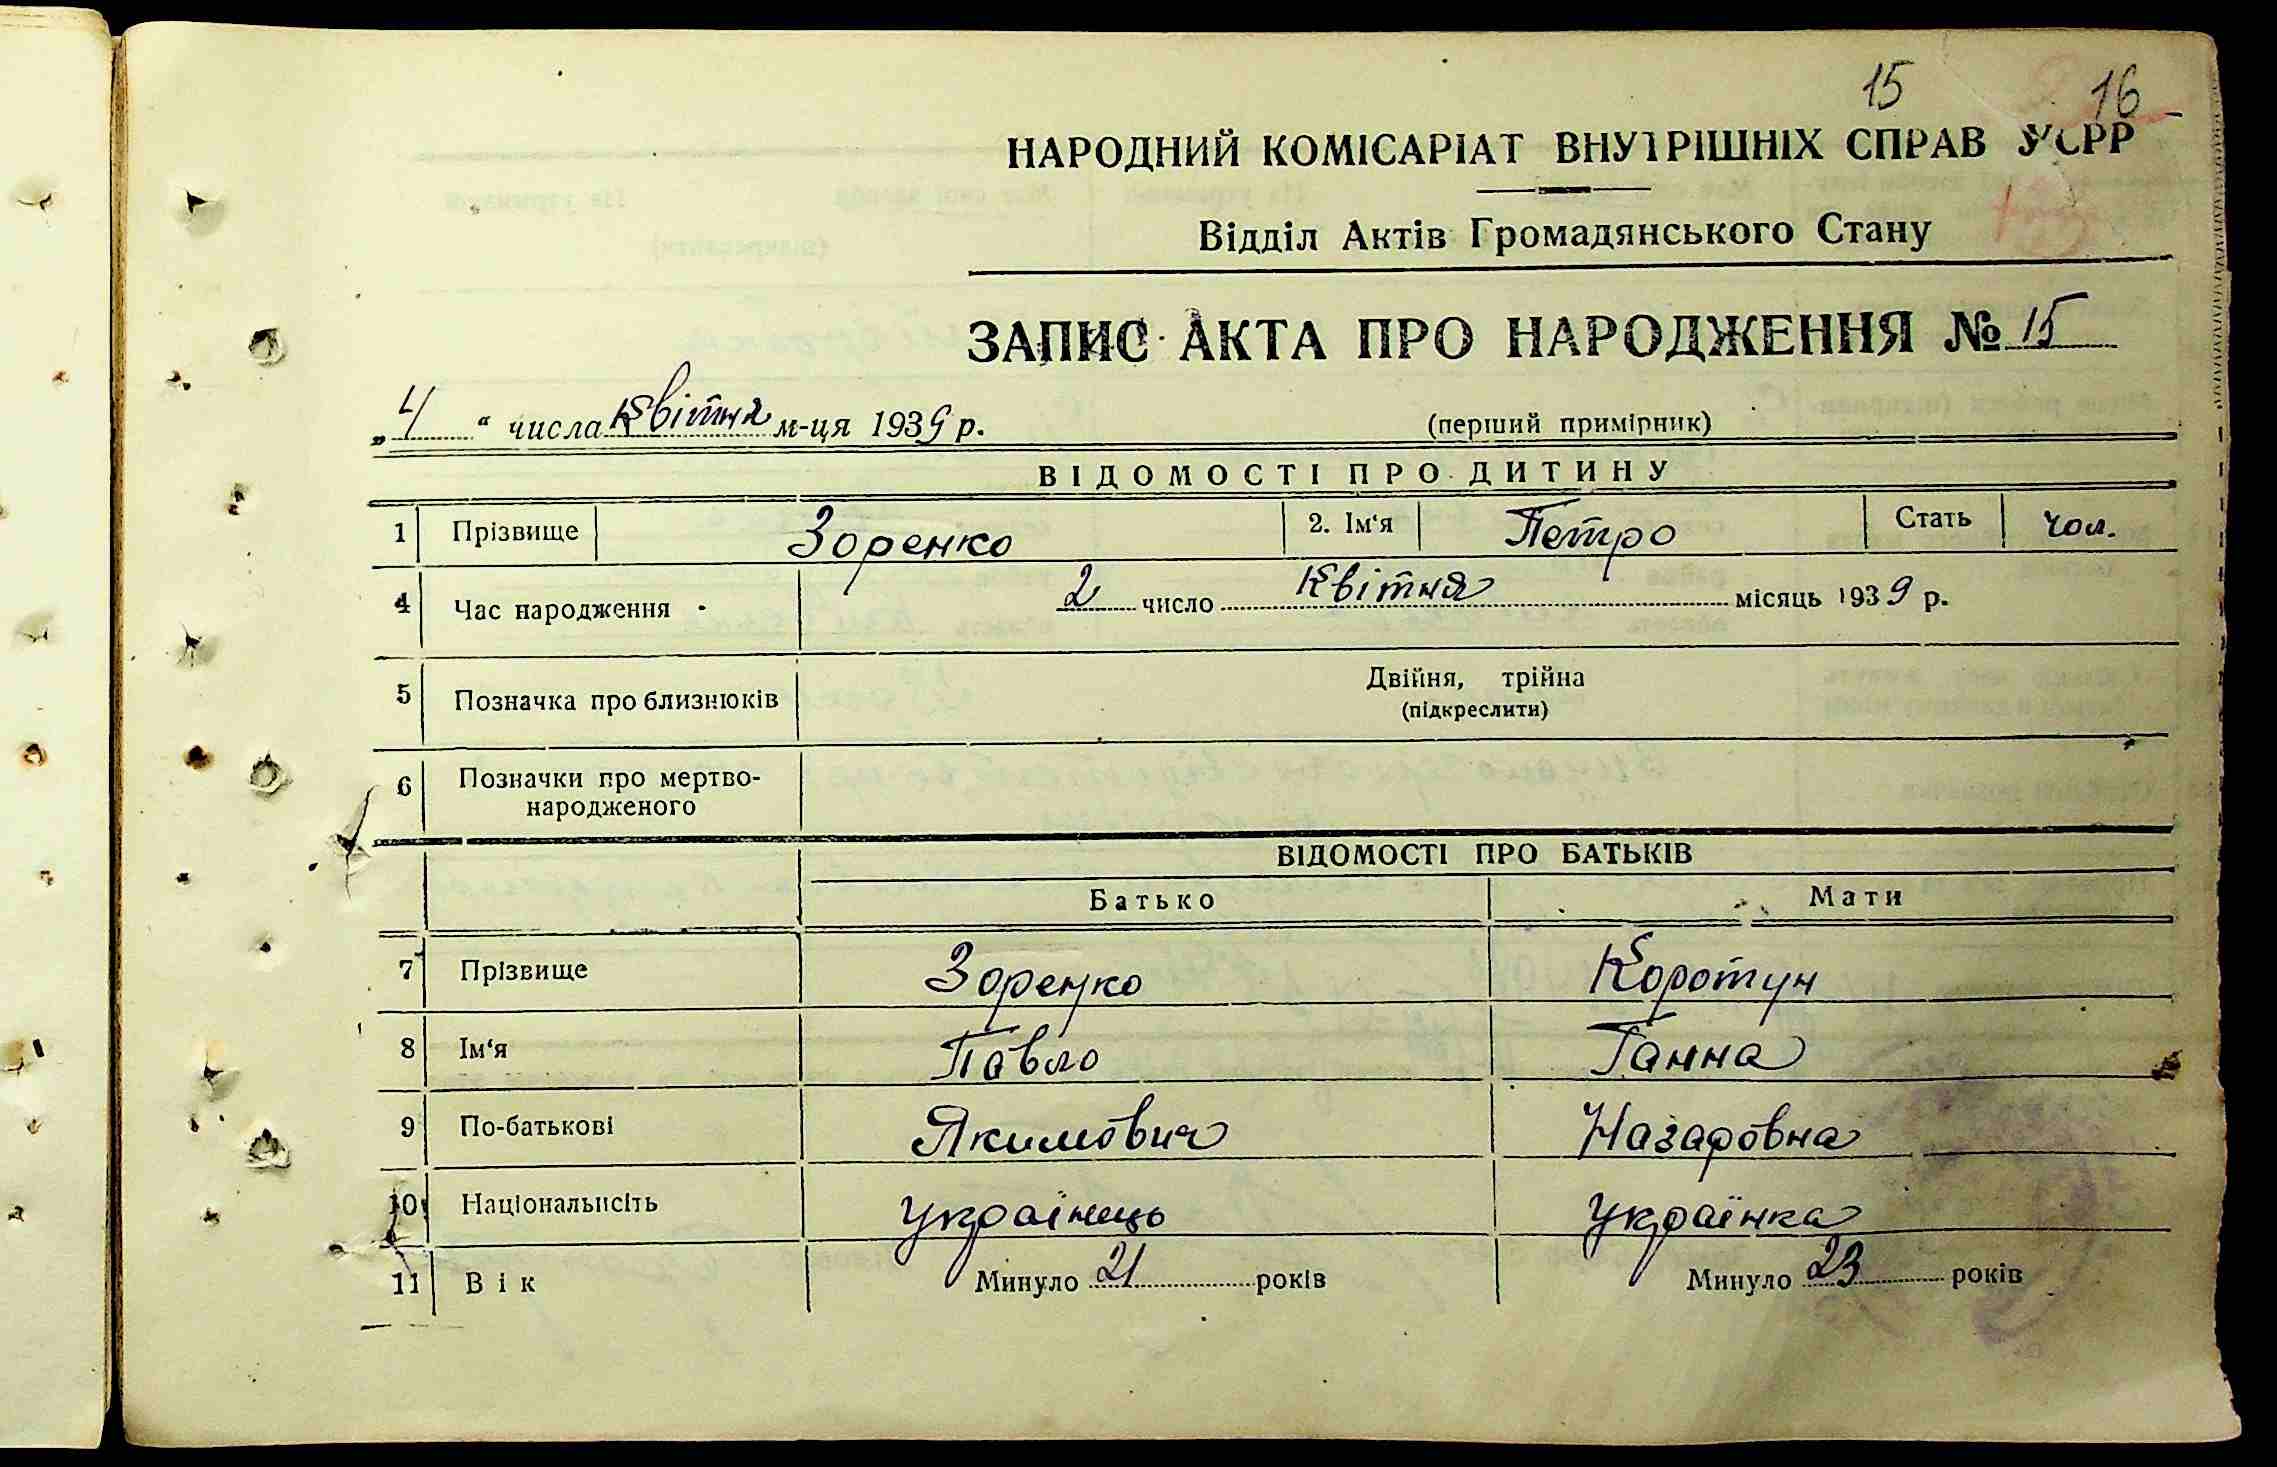 15 16
НАРОДНИЙ КОМІСАРІАТ ВНУТРІШНІХ СПРАВ УСРР
Відділ Актів Громадянського Стану
ЗАПИС АКТА ПРО НАРОДЖЕННЯ № 15
„ 4 “ числа Квітня м-ця 1939 р. (перший примірник)
ВІДОМОСТІ ПРО ДИТИНУ
1 Прізвище Зоренко 2. Ім‘я Петро Стать чол.
4 Час народження 2 число Квітня місяць 1939 р.
5 Позначка про близнюків Двійня, трійна
(підкреслити)
6 Позначки про мертво-
народженого
ВІДОМОСТІ ПРО БАТЬКІВ
Батько Мати
7 Прізвище Зоренко Коротун
8 Ім‘я Павло Ганна
9 По-батькові Якимович Назаровна
10 Національнсіть Українець Українка
11 Вік Минуло 21 років Минуло 23 років